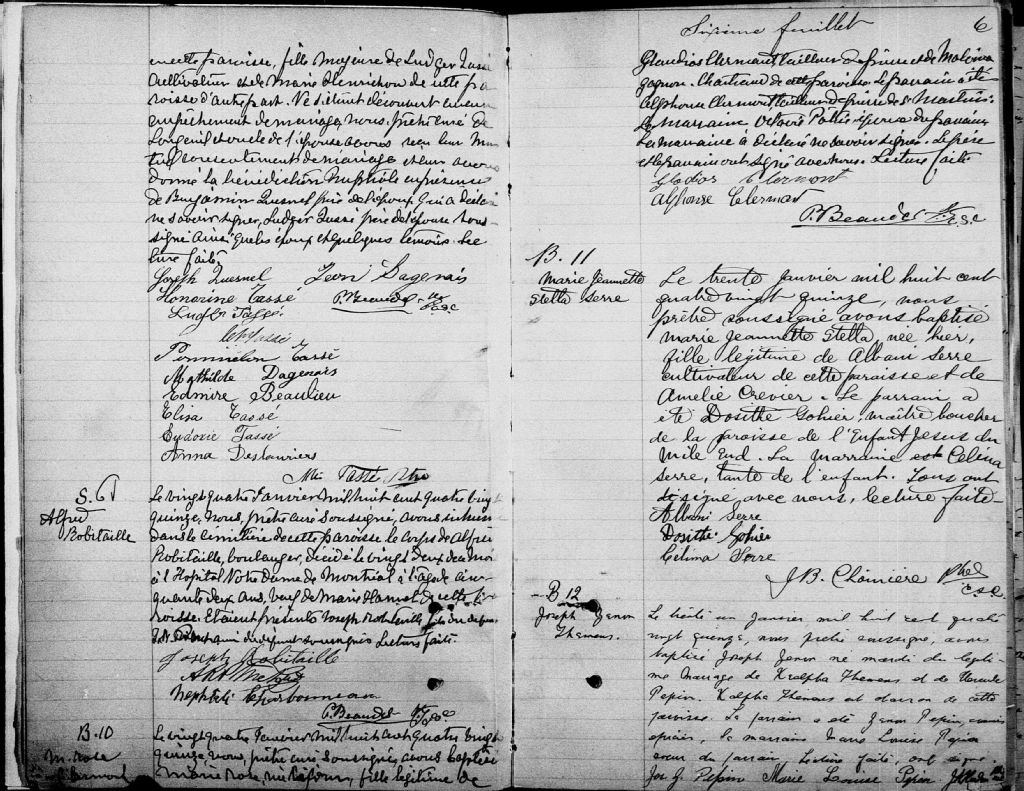 cette paroisse, fille majeure de Ludger Tassé
cultivateur et de Marie Henrichon de cette pa
roisse d'autre part. Ne s'étant découvert aucun
empêchement de mariage, nous, prêtre curé de
Longeuil et oncle de l'épouse avons reçu leur mu
tuel consentement de mariage et leur avons
donné la bénédiction nuptiale en présence
de Benjamin Quesnel père de l'époux qui a déclaré
ne savoir signer, Ludger Tassé père de l'épouse sous
signé ainsi que les époux et quelques témoins. Lec
ture faite.
Joseph Quesnel Jean Dagenais
Honorine Tassé P. Beaudet
Ludger Tassé
Tassé
Tassé
Mathilde Dagenais
Edmire Beaulieu
Elisa Tassé
Eudoxie Tassé
Anna Deslauriers
Tassé Ptre
S. 6
Alfred
Robitaille
Le vingt quatre Janvier mil huit cent quatre vingt
quinze, nous, prêtre curé soussigné, avons inhumé
dans le cimetière de cette paroisse le corps de Alfred
Robitaille, boulanger, décédé le vingt deux du mois
à l'Hopital Notre Dame de Montréal à l'age de cin-
quante deux ans, veuf de Marie Hamel de cette pa
roisse. Etaient présents Joseph Robitaille fils du défunt
ami du défunt soussignés Lecture faite.
Joseph Robitaille
Charbonneau
P. Beaudet
B. 10
M. Rose
Clermont
Le vingt quatre Janvier mil huit cent quatre vingt
quinze, nous, prêtre curé soussigné, avons baptisé
Marie Rose, née le jour, fille légitime de
Sixième feuillet 6
Gladios Clermont, tailleur de pierre et de Malvina
Gagnon. Chartrand de cette paroisse. Le parrain a été
Alphonse Clermont, tailleur de pierre de St Martin.
La Marraine épouse du parrain
La marraine a déclaré ne savoir signer. Le père
et le parrain ont signé avec nous. Lecture faite
Gladios Clermont
Alphonse Clermont
P. Beaudet
B. 11
Marie Jeannette
Stella Serre
Le trente Janvier mil huit cent
quatre vingt quinze, nous
prêtre soussigné avons baptisé
Marie Jeannette Stella, née hier,
fille légitime de Albani Serre
cultivateur de cette paroisse et de
Amelie Crevier. Le parrain a
été Dosithe Gohier, maître boucher
de la paroisse de l'Enfant Jesus du
Mile End. La marraine est Celina
Serre, tante de l'enfant. Tous ont
signé avec nous, lecture faite.
Albani Serre
Dosithe Gohier
Célima Serre
J.B. Chômière
B 12
Joseph Zenon
Themens.
Le trente un Janvier mil huit cent quatre
vingt quinze, nous prêtre soussigné, avons
baptisé Joseph Zenon né mardi du légiti-
me mariage de Themens et de
Pepin. de cette
paroisse. Le parrain a été Zenon Pepin,
épicier, la marraine Marie Louise Pepin
soeur du parrain. Lecture faite, ont signé
Jos. Z. Pepin Marie Louise Pepin